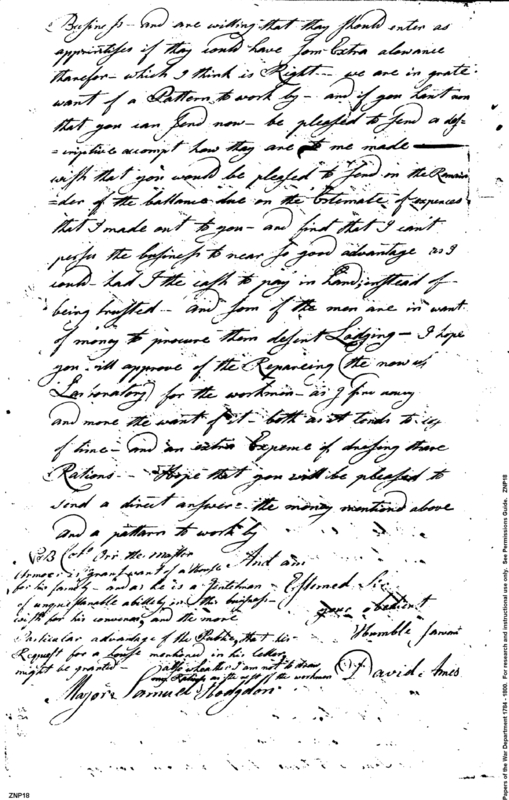 Business - and are willing that they should enter as
apprintises if they could have som Extra alowance
therefor - which I think is Right - we are in grate
want of a Pattern to work by - and if you hant one
that you can send now - be pleased to send a des=
=criptive accompt how they are to me made
wish that you would be pleased to send on the Remain
=der of the ballance due on the Estemate of expences
that I made out to you - and find that I can't
persue the business to near so good advantage as I
could had I the cash to pay in hand instead of
being trusted - and som of the men are in want
of money to procure them desent Lodging - I hope
you will approve of the Repareing (the now
Laboratory) for the workmen - as I find more
and more the want of it - both as it tends to
of time - and an extra Expence of dressing there
Rations - Hope that you will be pleased to
send a direct answer - the money mentiond above
and a pattern to work by
NB Orr the master
Armorer is grate want of a House
And am
for his family - and as he is a Gentelman
Esteemed Sir
of unquestionable abillety in this business
your obedient
wish for his convenance and the more
Humble Servant
Particular advantage of the Publick that his
Request for a house mentioned in his letter
might be granted -
allso wheather I am not to draw
my Rations as the rest of the workmen
David Ames
Major Samuel Hodgdon
ZNP18
Papers of the War Department 1784 - 1800. For research and instructional use only. See Permissions Guide. ZNP18